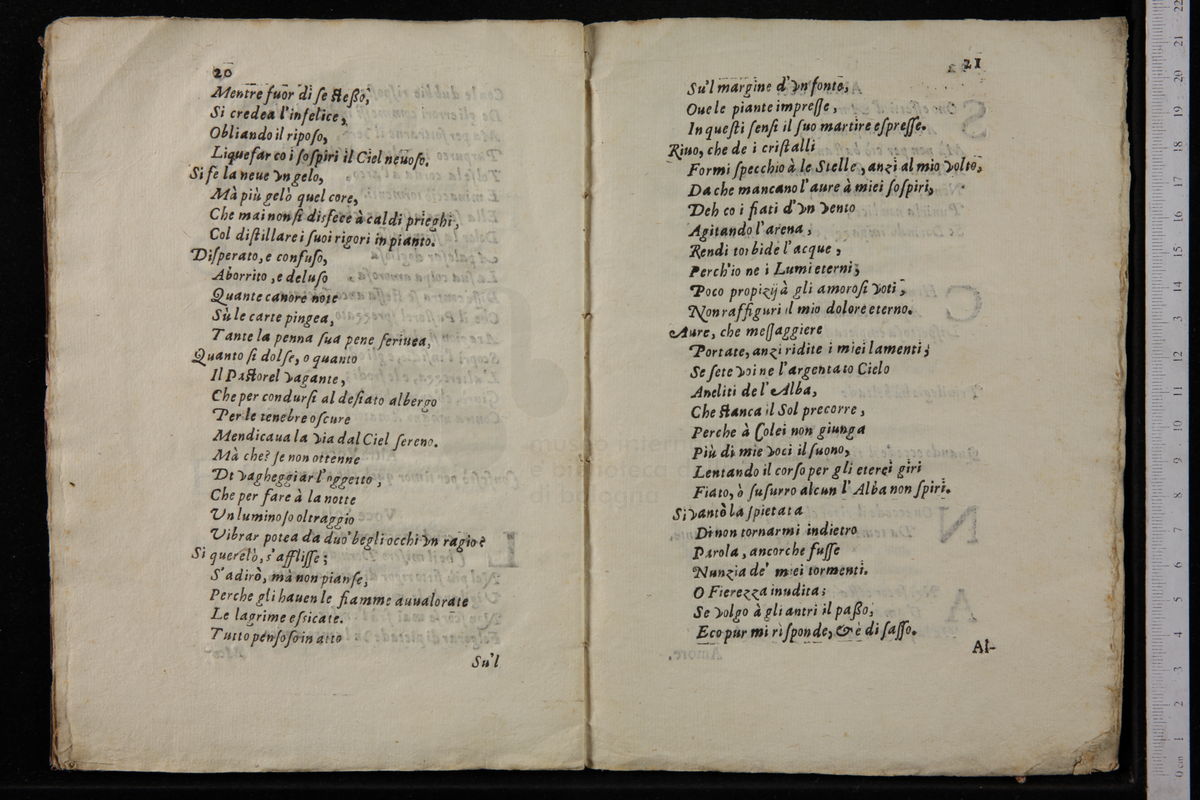 20
Mentre fuor di se steßo,
Si credea l'infelice,
Obliando il riposo,
Liquefar co i sospiri il Ciel neuoso.
Si fè la neue vn gelo,
Mà più gelò quel core,
Che mai non si disfece à caldi prieghi,
Col distillare i suoi rigori in pianto.
Disperato, e confuso,
Aborrito, e deluso
Quante canore note
Sù le carte pingea,
Tante la penna sua pene feriuea,
Quanto si dolse, o quanto
Il Pastorel vagante,
Che per condursi al desiato albergo
Per le tenebre oscure
Mendicaua la via dal Ciel sereno.
Mà che? se non ottenne
Di vagheggiar l'oggetto,
Che per fare à la notte
Vn luminoso oltraggio
Vibrar potea da duo' begli occhi vn ragio?
Si querelò, s'afflisse;
S'adirò, mà non pianse;
Perche gli hauen le fiamme auualorate
Le lagrime essicate.
Tutto pensoso in atto
Su'l
21
Su'l margine d'vn fonte,
Oue le piante impresse,
In questi sensi il suo martire espresse.
Riuo, che de i cristalli
Formi specchio à le Stelle, anzi al mio volto,
Da che mancano l'aure à miei sospiri,
Deh co i fiati d'vn vento
Agitando l'arena,
Rendi torbide l'acque,
Perch'io ne i Lumi eterni,
Poco propizij à gli amorosi voti,
Non raffiguri il mio dolore eterno.
Aure, che messaggiere
Portate, anzi ridite i miei lamenti;
Se sete voi ne l'argentato Cielo
Aneliti de l'Alba,
Che stanca il Sol precorre,
Perche à Colei non giunga
Più di mie voci il suono,
Lentando il corso per gli eterei giri
Fiato, ò susurro alcun l'Alba non spiri.
Si vantò la spietata
Di non tornarmi indietro
Parola, ancorche fusse
Nunzia de' miei tormenti.
O Fierezza inudita;
Se volgo à gli antri il paßo,
Eco pur mi risponde, & è di sasso.
Al-